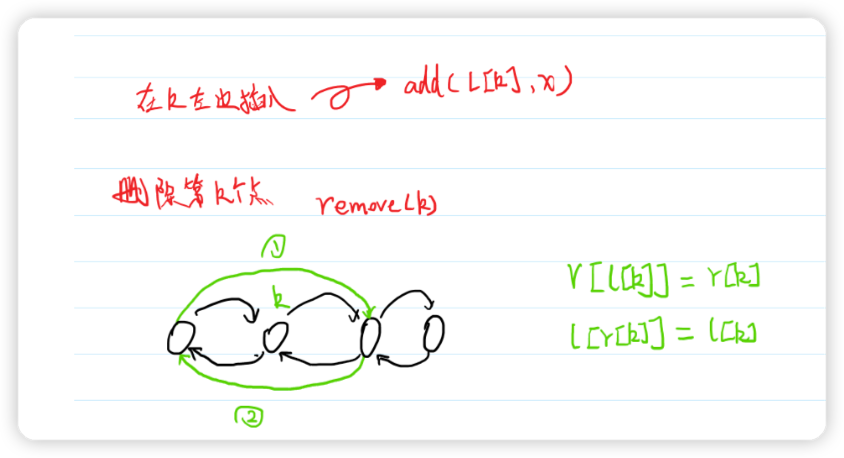 在k左边插入 add(L[k],x)
删除第k个点 remove(k)
①
k
r[l[k]] = r[k]
l[r[k]] = l[k]
②